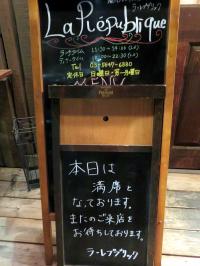 La République
ラ・レプブリック
ランチタイム 11:30〜
ディナータイム
Tel 03-5647-6880
定休日 日曜日・第一月曜日
MENU
本日は
満席と
なっております。
またのご来店を
お待ちしております。
ラ・レプブリック